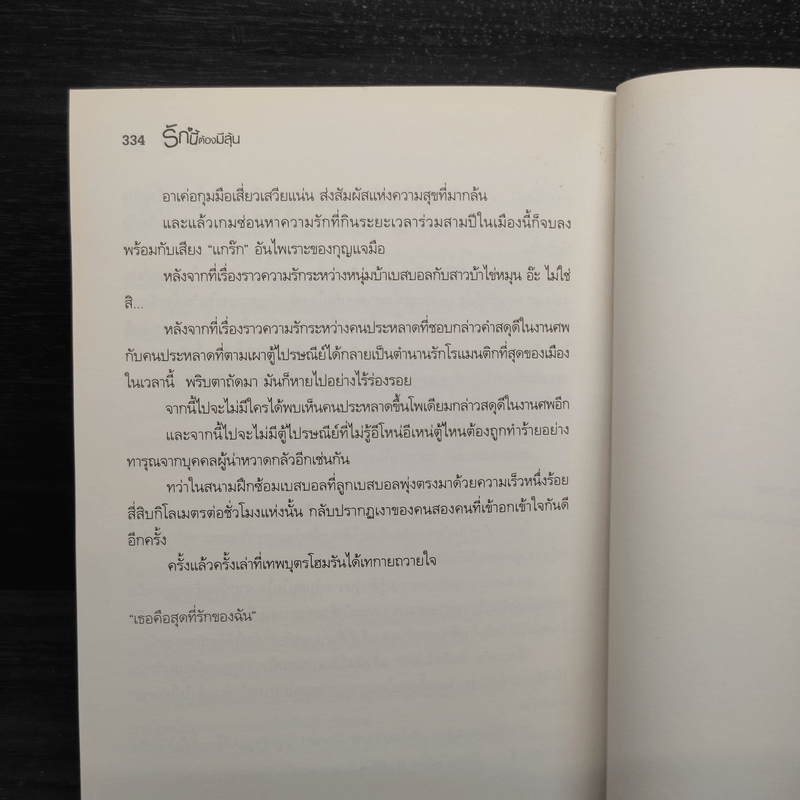 334 รักนี้ต้องมีลุ้น
อาเค่อกุมมือเสี่ยวเสวียแน่น ส่งสัมผัสแห่งความสุขที่มากล้น
และแล้วเกมซ่อนหาความรักที่กินระยะเวลาร่วมสามปีในเมืองนี้ก็จบลง
พร้อมกับเสียง “แกร๊ก” อันไพเราะของกุญแจมือ
หลังจากที่เรื่องราวความรักระหว่างหนุ่มบ้าเบสบอลกับสาวบ้าไข่หมุน อ๊ะ ไม่ใช่
สิ...
หลังจากที่เรื่องราวความรักระหว่างคนประหลาดที่ชอบกล่าวคำสดุดีในงานศพ
กับคนประหลาดที่ตามเผาตู้ไปรษณีย์ได้กลายเป็นตำนานรักโรแมนติกที่สุดของเมือง
ในเวลานี้ พริบตาถัดมา มันก็หายไปอย่างไร้ร่องรอย
จากนี้ไปจะไม่มีใครได้พบเห็นคนประหลาดขึ้นโพเดียมกล่าวสดุดีในงานศพอีก
และจากนี้ไปจะไม่มีตู้ไปรษณีย์ที่ไม่รู้อีโหน่อีเหน่ตู้ไหนต้องถูกทำร้ายอย่าง
ทารุณจากบุคคลผู้น่าหวาดกลัวอีกเช่นกัน
ทว่าในสนามฝึกซ้อมเบสบอลที่ลูกเบสบอลพุ่งตรงมาด้วยความเร็วหนึ่งร้อย
สี่สิบกิโลเมตรต่อชั่วโมงแห่งนั้น กลับปรากฏเงาของคนสองคนที่เข้าอกเข้าใจกันดี
อีกครั้ง
ครั้งแล้วครั้งเล่าที่เทพบุตรโฮมรันได้เทกายถวายใจ
“เธอคือสุดที่รักของฉัน”